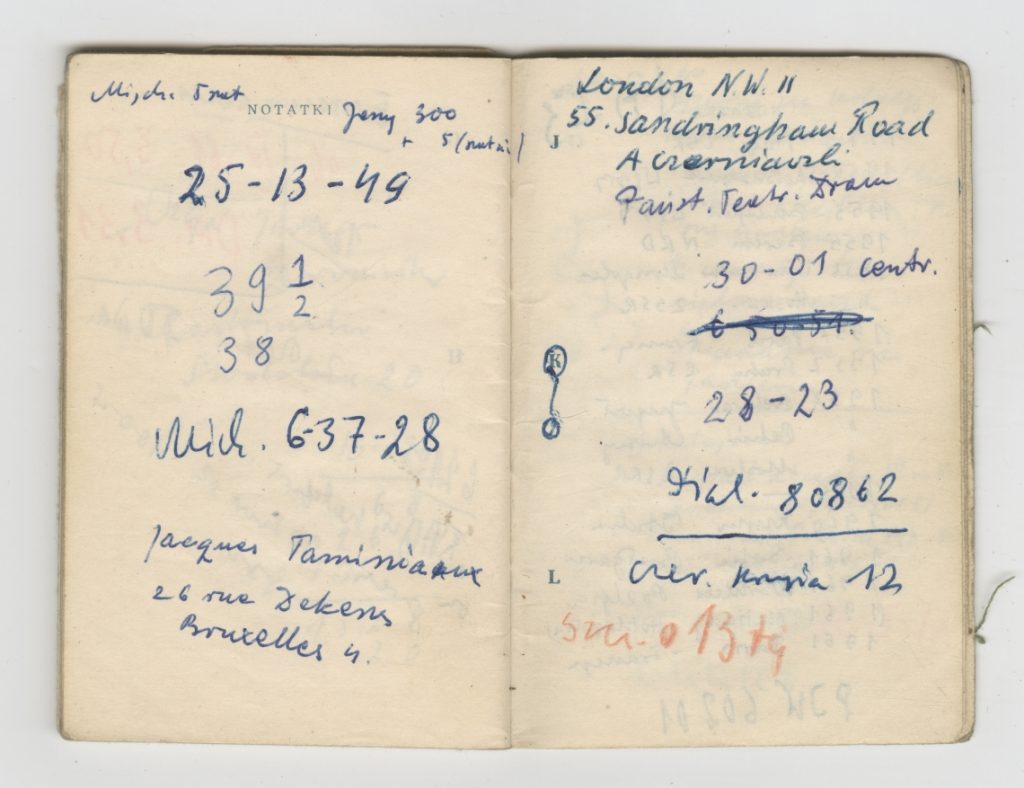 NOTATKI
Jerzy 300
+ 5
25-13-49
39 1/2
38
Mich. 6-37-28
Jacques Taminiaux
26 rue Dekens
Bruxelles 4.
London N.W. 11
J
55. Sandringham Road
A Czerniawski
Państ. Teatr. Dram
30-01 centr.
6 50-51.
K
28-23
80862
L
Czer. Krzyża 12
o 13 tej